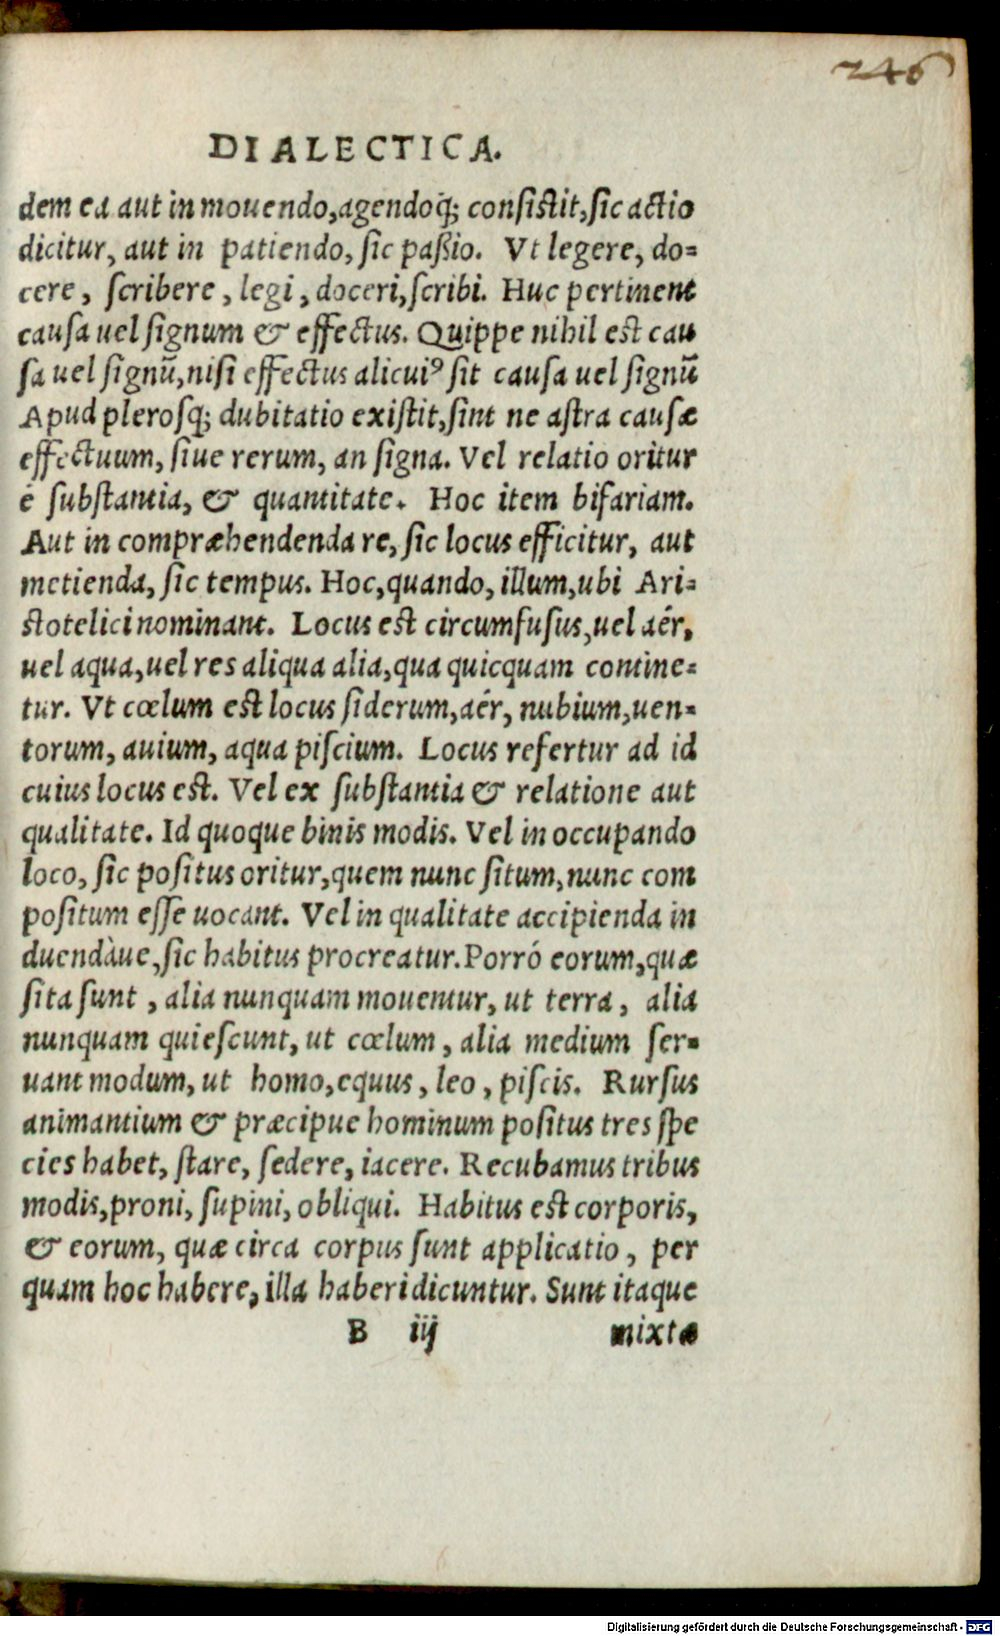 246
DIALECTICA.
dem ea aut in mouendo, agendoq́; consistit, sic actio
dicitur, aut in patiendo, sic paßio. Vt legere, do=
cere, scribere, legi, doceri, scribi. Huc pertinent
causa uel signum & effectus. Quippe nihil est cau
sa uel signū, nisi effectus alicuiꝰ sit causa uel signū
Apud plerosq́; dubitatio existit, sint ne astra causæ
effectuum, siue rerum, an signa. Vel relatio oritur
é substantia, & quantitate. Hoc item bifariam.
Aut in compræhendenda re, sic locus efficitur, aut
metienda, sic tempus. Hoc, quando, illum, ubi Ari=
stotelici nominant. Locus est circumfusus, uel aér,
uel aqua, uel res aliqua alia, qua quicquam contine=
tur. Vt cœlum est locus siderum, aér, nubium, uen=
torum, auium, aqua piscium. Locus refertur ad id
cuius locus est. Vel ex substantia & relatione aut
qualitate. Id quoque binis modis. Vel in occupando
loco, sic positus oritur, quem nunc situm, nunc com
positum esse uocant. Vel in qualitate accipienda in
duendàue, sic habitus procreatur. Porró eorum, quæ
sita sunt, alia nunquam mouentur, ut terra, alia
nunquam quiescunt, ut cœlum, alia medium ser=
uant modum, ut homo, equus, leo, piscis. Rursus
animantium & præcipue hominum positus tres spe
cies habet, stare, sedere, iacere. Recubamus tribus
modis, proni, supini, obliqui. Habitus est corporis,
& eorum, quæ circa corpus sunt applicatio, per
quam hoc habere, illa haberi dicuntur. Sunt itaque
B iij mixtæ
Digitalisierung gefördert durch die Deutsche Forschungsgemeinschaft - DFG